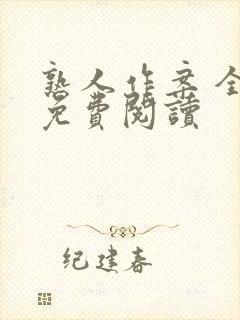 熟人作案全
免費閱讀
纪建春